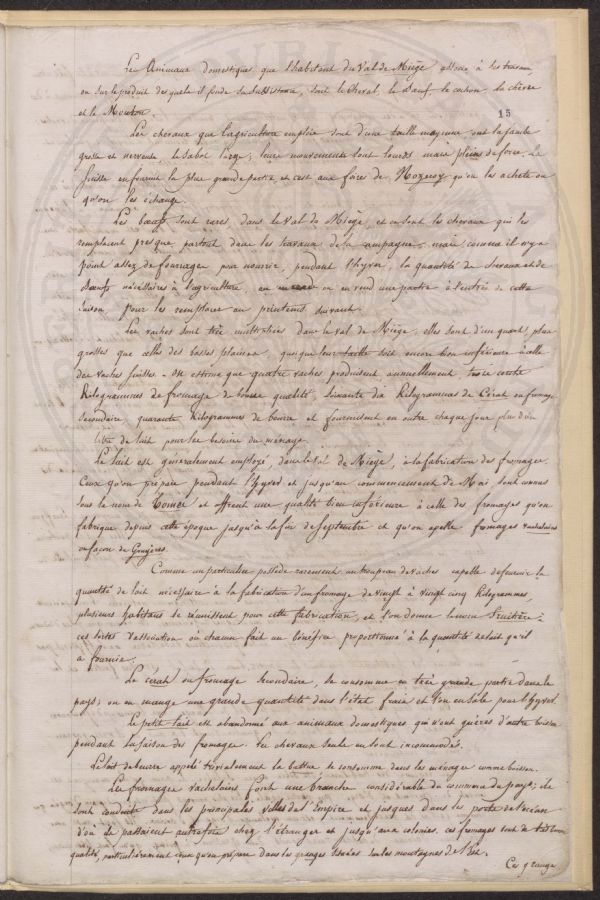 Les Animaux domestiques que l'habitant du Val de Miège associe à ses travaux
ou sur le produit des quels il fonde sa subsistance, sont le cheval, le Bœuf, le cochon, la chèvre
et le Mouton.
15
Les chevaux que l'agriculture emploie sont d'une taille moyenne, ont la jambe
grosse et nerveuse, le sabot large; leurs mouvements sont lourds mais pleins de force, la
Suisse en fournit la plus grande partie et c'est aux foires de Nozeroy qu'on les achete ou
qu'on les échange.
Les bœufs sont rares dans le Val de Miège, et ce sont les chevaux qui les
remplacent presque partout dans les travaux de la campagne, mais comme il n'y a
point assez de fourrage pour nourrir, pendant l'hyver, la quantité de chevaux et de
Bœufs nécessaires à l'agriculture, on en vend une partie à l'entrée de cette
saison pour les remplacer au printems suivant.
Les vaches sont très multipliées dans le Val de Miège, elles sont d'un quart plus
grosses que celles des basses plaines, quoique leur taille soit encore bien inférieure à celle
des vaches suisses. On estime que quatre vaches produisent annuellement trois cents
Kilogrammes de fromage de bonne qualité, soixante dix Kilogrammes de Cérat ou fromage
secondaire, quarante Kilogrammes de beurre et fournissent en outre chaque jour plus d'un
litre de lait pour les besoins du ménage.
Le lait est généralement employé, dans le Val de Miège, à la fabrication des fromages.
Ceux qu'on prépare pendant l'hyver et jusqu'au commencement de Mai, sont connus
sous le nom de Tomes et offrent une qualité bien inférieure à celle des fromages qu'on
fabrique depuis cette époque jusqu'à la fin de septembre et qu'on apelle fromages vachelains
ou façon de Gruyères.
Comme un particulier possède rarement un troupeau de vaches capable de fournir la
quantité de lait nécessaire à la fabrication d'un fromage de vingt à vingt cinq Kilogrammes
plusieurs habitans se réunissent pour cette fabrication, et l'on donne le nom Fruitière à
ces sortes d'association où chacun fait un bénéfice proportionné à la quantité de lait qu'il
a fournie.
Le cérat ou fromage secondaire, se consomme en très grande partie dans le
pays; on en mange une grande quantité dans l'état frais et l'on en sale pour l'hyver.
Le petit lait est abandonné aux animaux domestiques qui n'ont guères d'autre boisson
pendant la saison des fromages. Les chevaux seuls en sont incommodés.
Le lait de beurre appelé trivialement la battue se consomme dans les ménages comme boisson.
Les fromages vachelains font une branche considérable du commerce du pays; ils
sont conduits dans les principales villes de l'Empire et jusques dans les ports de l'océan
d'où ils passaient autrefois chez l'étranger et jusqu'aux colonies. ces fromages sont de très bonne
qualité, particulièrement ceux qu'on prépare dans les granges situées sur les montagnes de
Ces granges